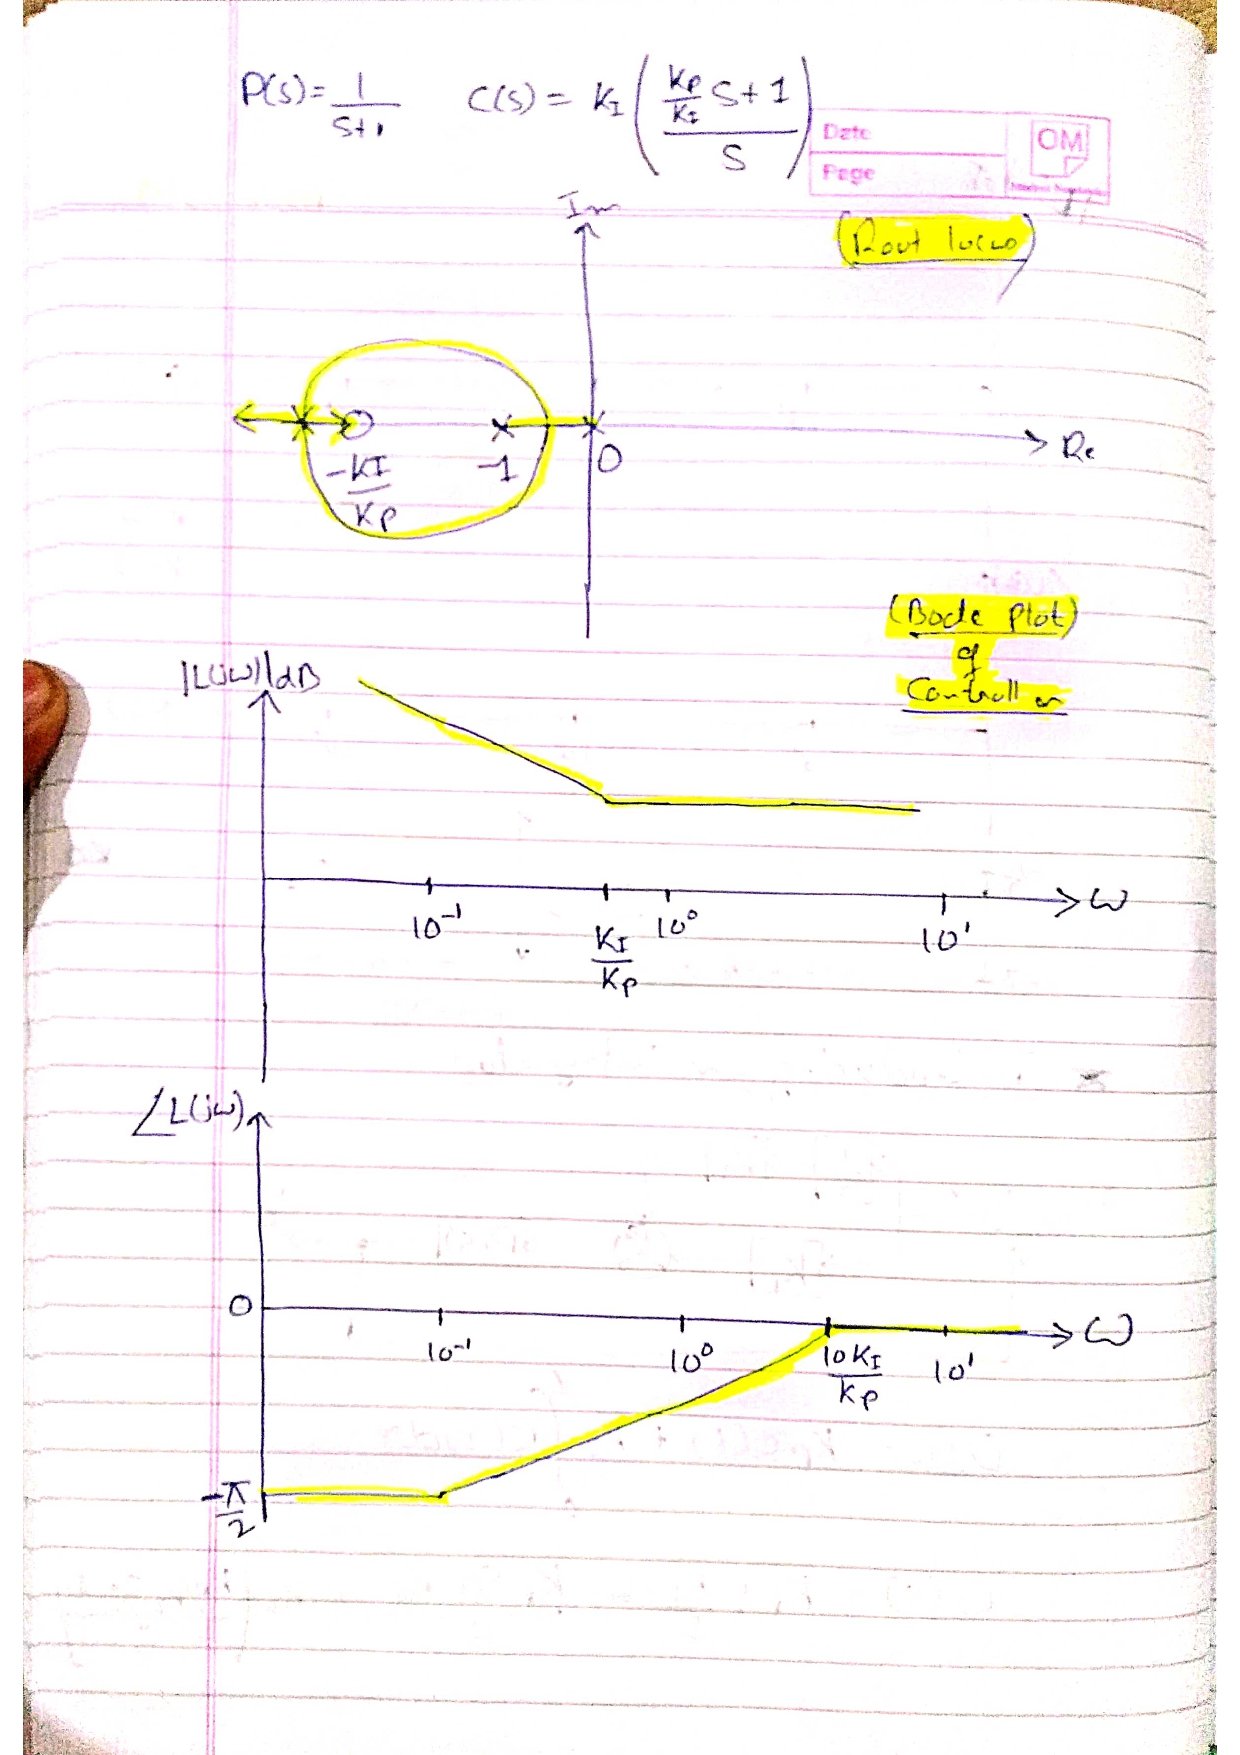 P(s) = 1/(s+1)   C(s) = K_I ( (K_P/K_I s + 1) / S )
Date
OM
Page
Im
(Rout locus)
Re
-KI/KP   -1   0
(Bode Plot)
of
Controller
|L(jω)|dB
ω
10⁻¹   K_I/K_P   10⁰   10¹
∠L(jω)
0
ω
10⁻¹   10⁰   10K_I/K_P   10¹
-π/2